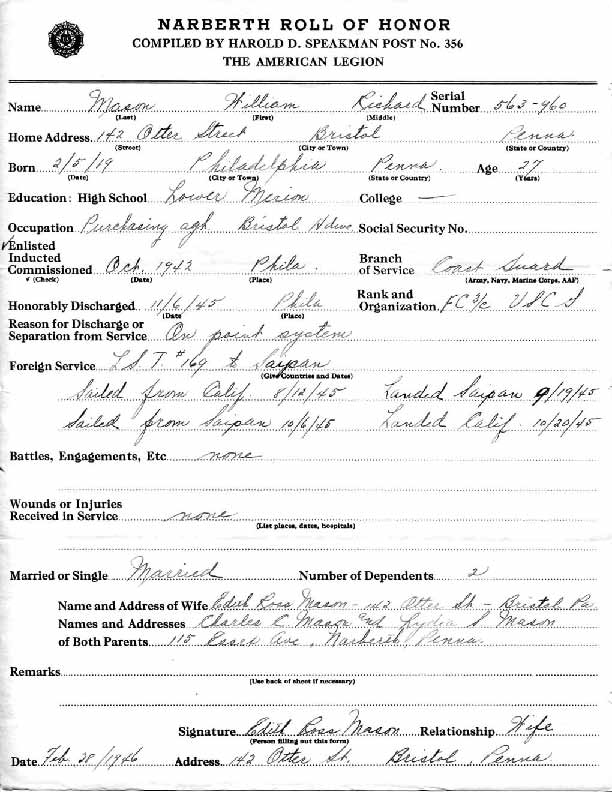 NARBERTH ROLL OF HONOR
COMPILED BY HAROLD D. SPEAKMAN POST No. 356
THE AMERICAN LEGION
Name Mason William Richard Serial Number 563-960
(Last) (First) (Middle)
Home Address 142 Otter Street Bristol Penna
(Street) (City or Town) (State or Country)
Born 2/5/19 Philadelphia Penna. Age 27
(Date) (City or Town) (State or Country) (Years)
Education: High School Lower Merion College —
Occupation Purchasing agt Bristol Hdwe Social Security No.
✓Enlisted
Inducted
Commissioned Oct. 1942 Phila. Branch of Service Coast Guard
✓ (Check) (Date) (Place) (Army, Navy, Marine Corps, AAF)
Honorably Discharged 11/6/45 Phila Rank and Organization FC 3/c
(Date (Place)
Reason for Discharge or
Separation from Service On point system
Foreign Service L.S.T. #169 to Saipan
(Give Countries and Dates)
Sailed from Calif 8/12/45 Landed Saipan 9/19/45
Sailed from Saipan 10/6/45 Landed Calif. 10/20/45
Battles, Engagements, Etc none
Wounds or Injuries
Received in Service none
(List places, dates, hospitals)
Married or Single Married Number of Dependents 2
Name and Address of Wife Edith Ross Mason - 142 Otter St - Bristol Pa.
Names and Addresses Charles C. Mason and Lydia S Mason
of Both Parents 115 Essex Ave, Narberth, Penna.
Remarks
(Use back of sheet if necessary)
Signature Edith Ross Mason Relationship Wife
(Person filling out this form)
Date Feb 28/1946 Address 142 Otter St. Bristol, Penna